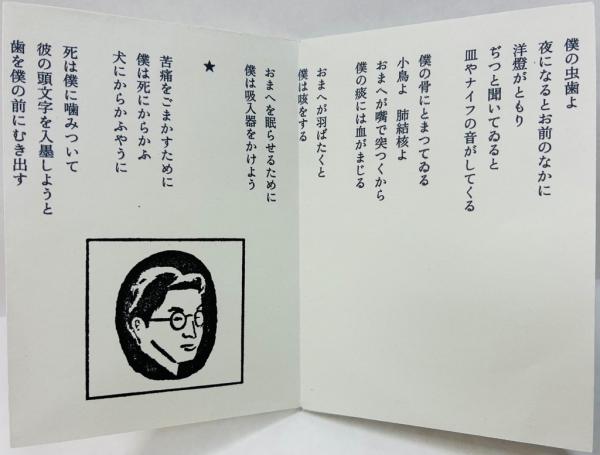 僕の虫歯よ
夜になるとお前のなかに
洋燈がともり
ぢつと聞いてゐると
皿やナイフの音がしてくる
僕の骨にとまつてゐる
小鳥よ　肺結核よ
おまへが嘴で突つくから
僕の痰には血がまじる
おまへが羽ばたくと
僕は咳をする
おまへを眠らせるために
僕は吸入器をかけよう
★
苦痛をごまかすために
僕は死にからかふ
犬にからかふやうに
死は僕に噛みついて
彼の頭文字を入墨しようと
歯を僕の前にむき出す